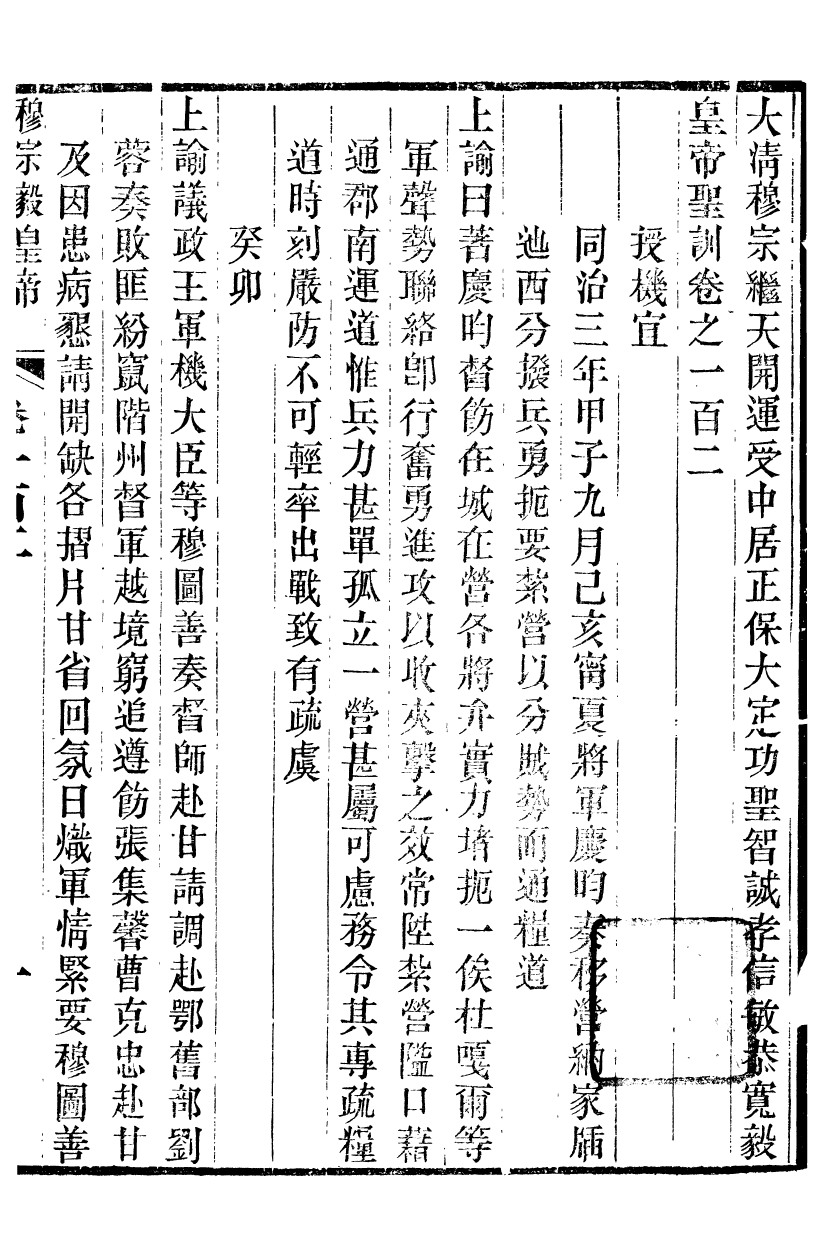 大清穆宗繼天開運受中居正保大定功聖智誠孝信敏恭寬毅
皇帝聖訓卷之一百二
授機宜
同治三年甲子九月己亥甯夏將軍慶昀奏移營納家牐
迆西分撥兵勇扼要紮營以分賊勢而通糧道
上諭曰著慶昀督飭在城在營各將弁實力堵扼一俟杜嘎爾等
軍聲勢聯絡卽行奮勇進攻以收夾擊之效常陞紮營隘口藉
通郡南運道惟兵力甚單孤立一營甚屬可慮務令其專疏糧
道時刻嚴防不可輕率出戰致有疏虞
癸卯
上諭議政王軍機大臣等穆圖善奏督師赴甘請調赴鄂舊部劉
蓉奏敗匪紛竄階州督軍越境窮追遵飭張集馨曹克忠赴甘
及因患病懇請開缺各摺片甘省回氛日熾軍情緊要穆圖善
穆宗毅皇帝 卷一百二 一